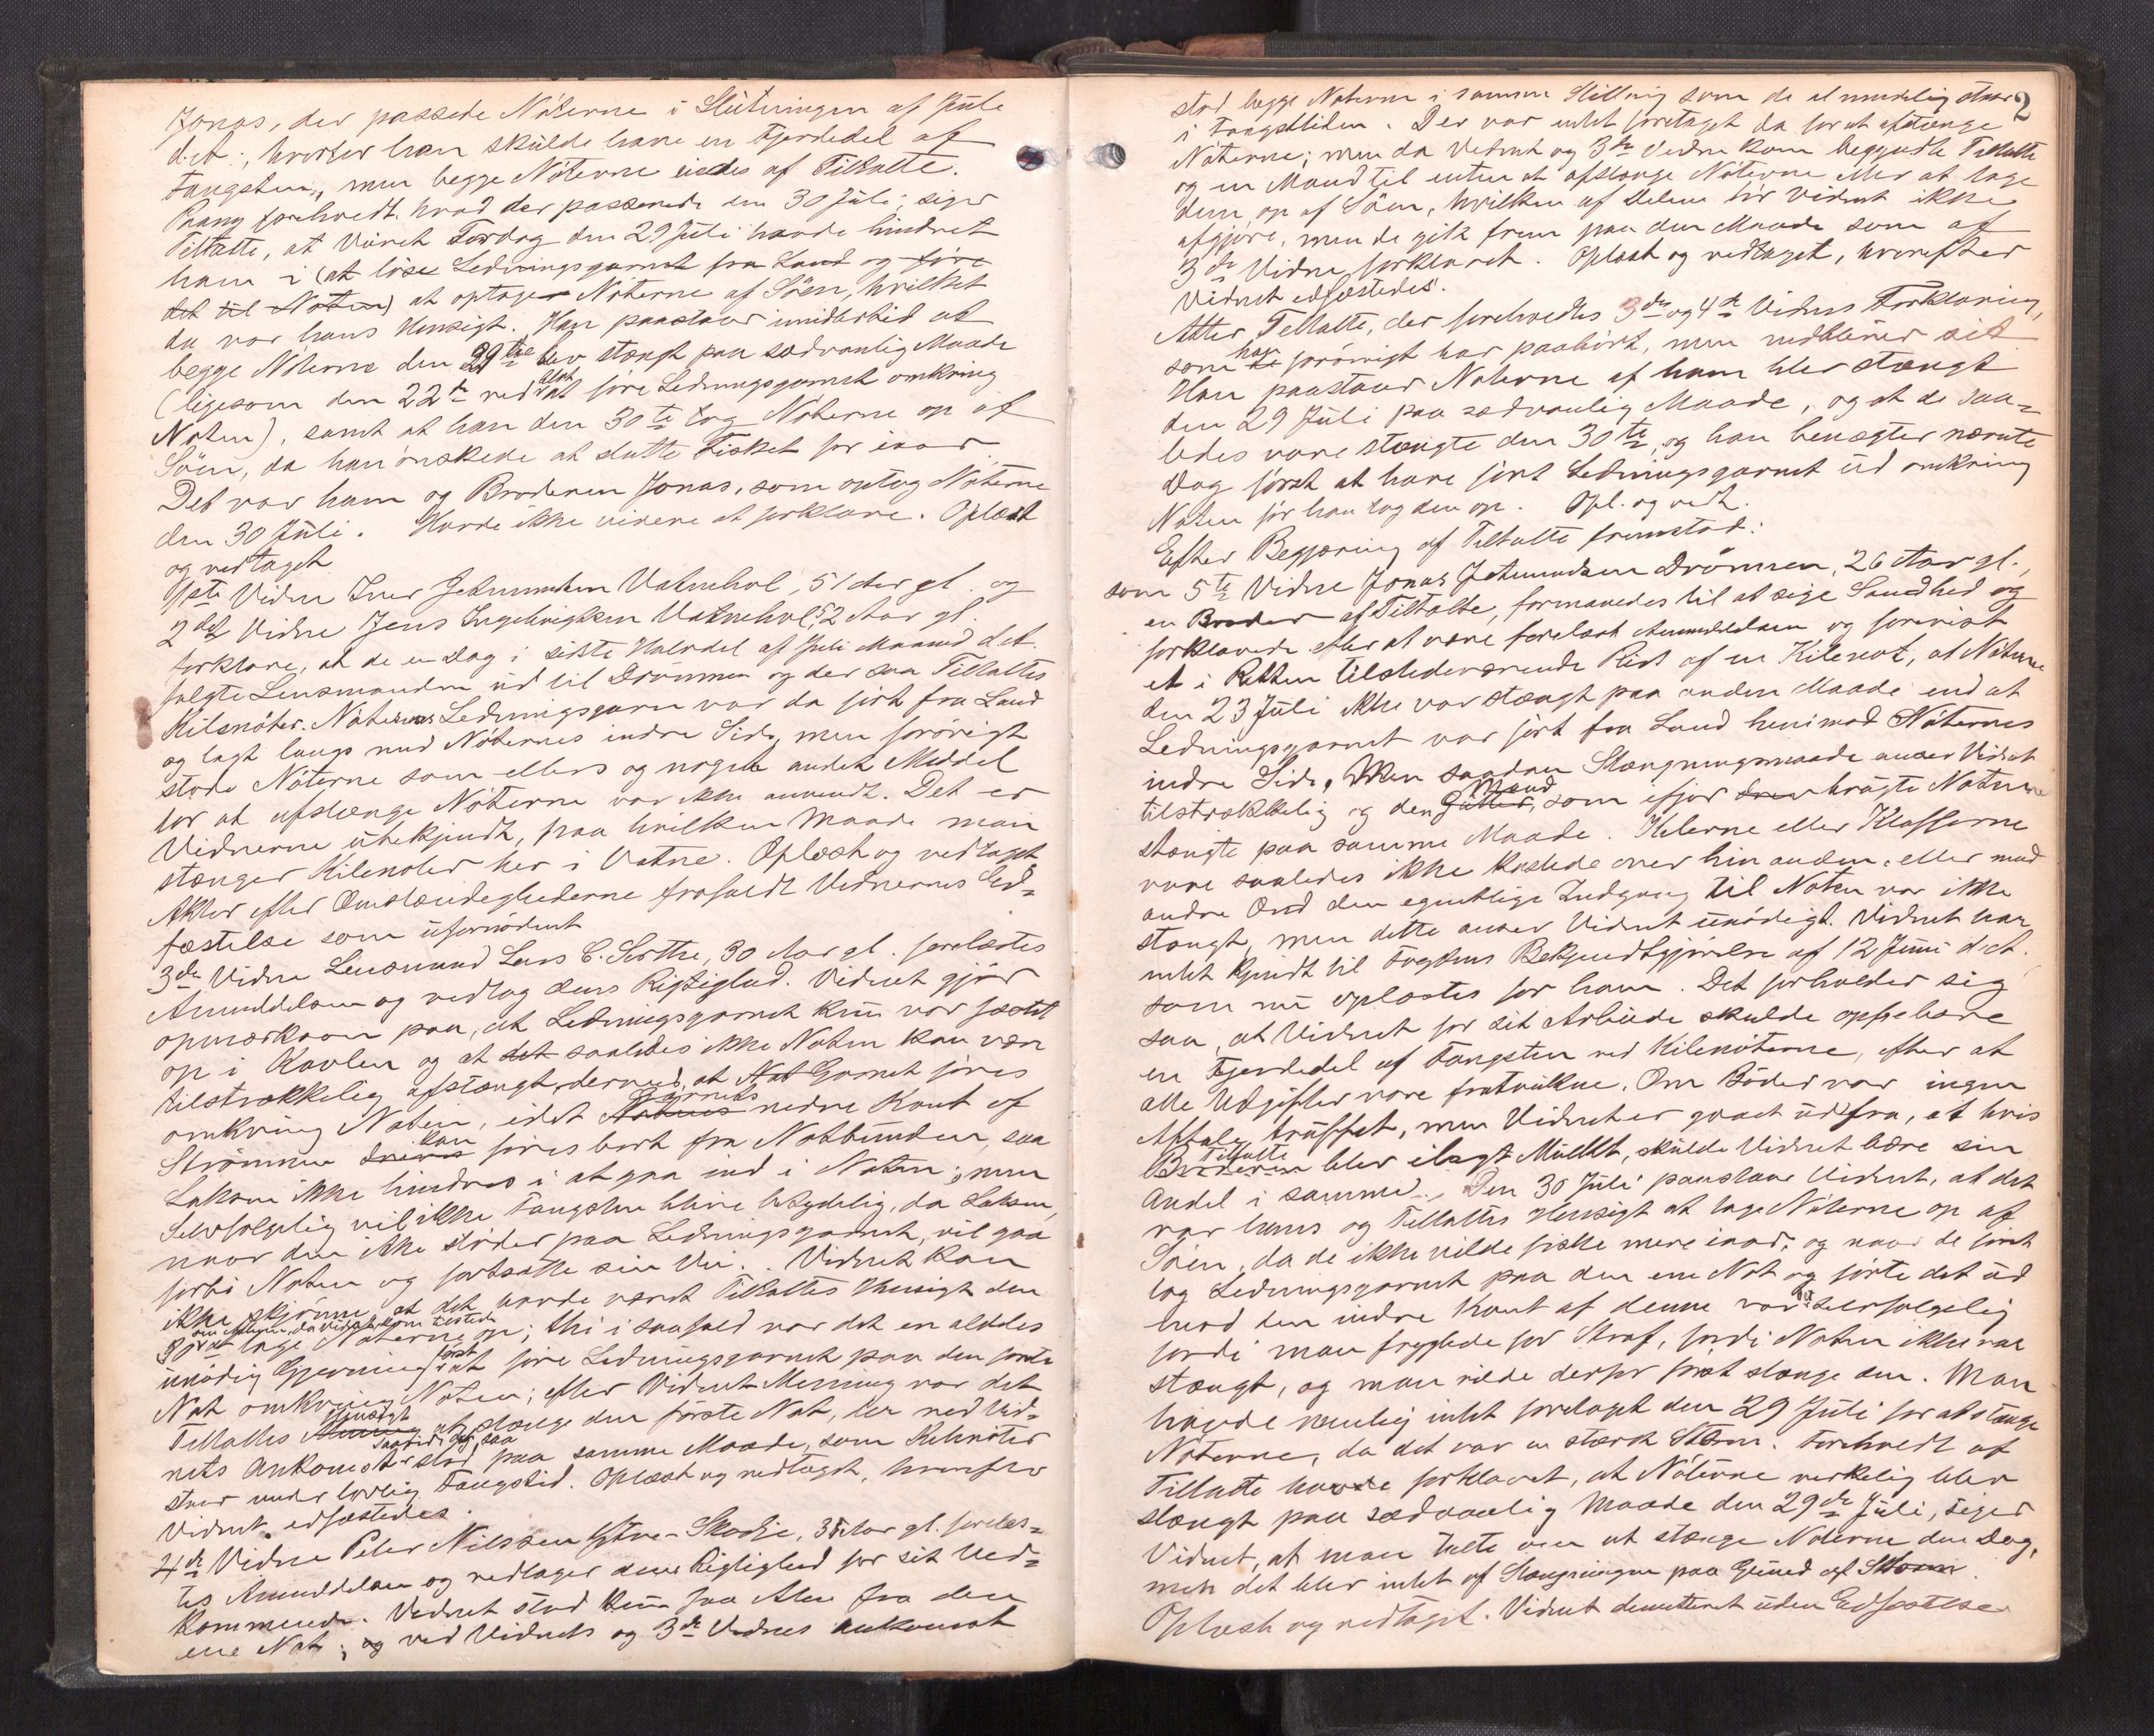 Jonas, der passede Nöterne i Slutningen af Juli
d. A., hvorfor han skulde have en Fjerdedel af
Fangsten, men begge Nöterne eiedes af Tiltalte.
Paany forehvedt. hvad der passerede den 30 Juli, siger
Tiltalte, at Veiret Lørdag den 29 Juli havde hindret
ham i (at löse Ledningsgarnet fra Land og före
det til Noten) at optage Nöterne af Söen, hvilket
da var hans Hensigt. Han paastaar imidlertid at
begge Nöterne den 29de blev stængt paa sædvanlig Maade
(ligesom den 22de ved blot at före Ledningsgarnet omkring
Noten), samt at han den 30te tog Nöterne op af
Söen, da han önskede at slutte Fisket for iaar.
Det var ham og Broderen Jonas, som optog Nöterne
den 30 Juli. Havde ikke videre at forklare. Oplæst
og vedtaget
1ste Vidne Iver Jetmundsen Vatnehol, 51 Aar gl. og
2det Vidne Jens Ingebrigtsen Vatnehol, 52 Aar gl.
forklare, at de en Dag i sidste Halvdel af Juli Maaned d. A.
fulgte Lensmanden ud til Drönnen og der saa Tiltaltes
Kilenöter. Nöternes Ledningsgarn var da fört fra Land
og lagt langs med Nöternes indre Side, men forövrigt
stode Nöterne som ellers og noget andet Middel
for at afstænge Nöterne var ikke anvendt. Det er
Vidnerne ubekjendt, paa hvilken Maade man
stænger Kilenoter her i Vatne. Oplæst og vedtaget
Aktor efter Omstændighederne frafaldt Vidnernes Ed-
fæstelse som ufornödent
3de Vidne Lensmand Lars C. Sørthe, 30 Aar gl. forelæstes
Anmeldelsen og vedtog dens Rigtighed. Vidnet gjör
opmærksom paa, at Ledningsgarnet kun var fæstet
op i Kavlen og at det saaledes ikke Noten kan være
tilstrækkelig afstængt derved, at Not Garnet föres
omkring Noten, idet Notens Garnets nedre Kant af
Strömmen drives kan föres bort fra Notbunden, saa
Laksen ikke hindres i at gaa ind i Noten; men
selvfölgelig vil ikke Fangsten blive betydelig, da Laksen,
naar den ikke stöder paa Ledningsgarnet, vil gaa
forbi Noten og fortsætte sin Vei. Vidnet kan
ikke skjönne, at det havde været Tiltaltes Hensigt den
om Aftenen, da Vidnet kom tilstede
30te at tage Nöterne op; thi i saafald var det en aldeles
unödig Gjerning först at före Ledningsgarnet paa den første
Not omkring Noten; efter Vidnets Mening var det
Tiltaltes Mening Hensigt at stænge den förste Not, der ved Vid-
nets Ankomst saavidt det saa stod paa samme Maade, som Kilenöter
staar under lovlig Fangstid. Oplæst og vedtaget, hvorefter
Vidnet edfæstedes.
4de Vidne Peter Nilssen Ytre-Skodje, 35 Aar gl. forelæs-
tes Anmeldelsen og vedtager dens Rigtighed for sit Ved-
kommende. Vidnet stod kun faa Alen fra den
ene Not; og ved Vidnets og 3de Vidnes Ankomst
2
stod begge Noterne i samme Stilling som de almindelig staar
i Fangsttiden. Der var intet foretaget da for at afstænge
Nöterne; men da Vidnet og 3de Vidne kom begyndte Tiltalte
og en Mand til enten at afstænge Nöterne eller at tage
dem op af Söen, hvilken af Delene tör Vidnet ikke
afgjöre, men de gik frem paa den Maade som af
3de Vidne forklaret. Oplæst og vedtaget, hvorefter
Vidnet edfæstedes.
Atter Tiltalte, der forehvedtes 3de og 4de Vidnes Forklaring,
som han forövrigt har paahört, men vedbliver sit
Han paastaar Noterne af ham blev stængt
den 29 Juli paa sædvanlig Maade, og at de saa-
ledes vare stængte den 30te, og han benægter nævnte
Dag först at have fört Ledningsgarnet ud omkring
Noten för han tog den op. Opl. og vedt.
Efter Begjæring af Tiltalte fremstod:
som 5te Vidne Jonas Jetmundsen Drönnen, 26 Aar gl.,
en Broder af Tiltalte, formanedes til at sige Sandhed og
forklarede efter at være forelæst Anmeldelsen og forevist
et i Retten tilstedeværende Rids af en Kilenot, at Nöterne
den 23 Juli ikke var stængt paa anden Maade end at
Ledningsgarnet var fört fra Land henimod Nöternes
indre Side. Men saadan Stængningsmaade anser Vidnet
tilstrækkelig og den Gutter, Mand som ifjor brugte Noterne
stængte paa samme Maade. Kilerne eller Klafferne
vare saaledes ikke kastede over hinanden, eller med
andre Ord den egentlige Indgang til Noten var ikke
stængt, men dette anser Vidnet unödigt. Vidnet har
intet kjendt til Fogdens Bekjendtgjörelse af 12 Juni d. A.
som nu oplæstes for ham. Det forholder sig
saa, at Vidnet for sit Arbeide skulde oppebære
en Fjerdedel af Fangsten ved Kilenöterne, efter at
alle Udgifter vare fratrukne. Om Böder var ingen
Aftale truffet, men Vidnet er gaaet ud fra, at hvis
Broderen Tiltalte blev ilagt Mulkt, skulde Vidnet bære sin
Andel i samme. Den 30 Juli paastaar Vidnet, at det
var hans og Tiltaltes Hensigt at tage Nöterne op af
Söen, da de ikke vilde fiske mere iaar, og naar de först
tog Ledningsgarnet paa den ene Not og förte det ud
med den indre Kant af denne var det selvfölgelig
fordi man frygtede for Straf, fordi Noten ikke var
stængt, og man vilde derfor först stænge den. Man
havde nemlig intet foretaget den 29 Juli for at stænge
Nöterne, da det var en stærk Storm. Forehvedt at
Tiltalte havde forklaret, at Nöterne virkelig blev
stængt paa sædvanlig Maade den 29de Juli, siger
Vidnet, at man talte om at stænge Noterne den Dag,
men det blev intet af Stængningen paa Grund af Storm.
Oplæst og vedtaget. Vidnet demitteret uden Edfæstelse